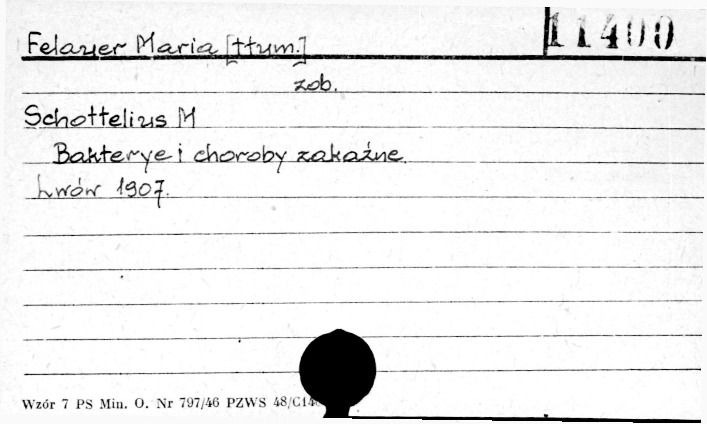 11400
Felauer Maria [tłum.]
zob.
Schottelius M
Bakterye i choroby zakaźne.
Lwów 1907.
Wzór 7 PS Min. O. Nr 797/46 PZWS 48/C14